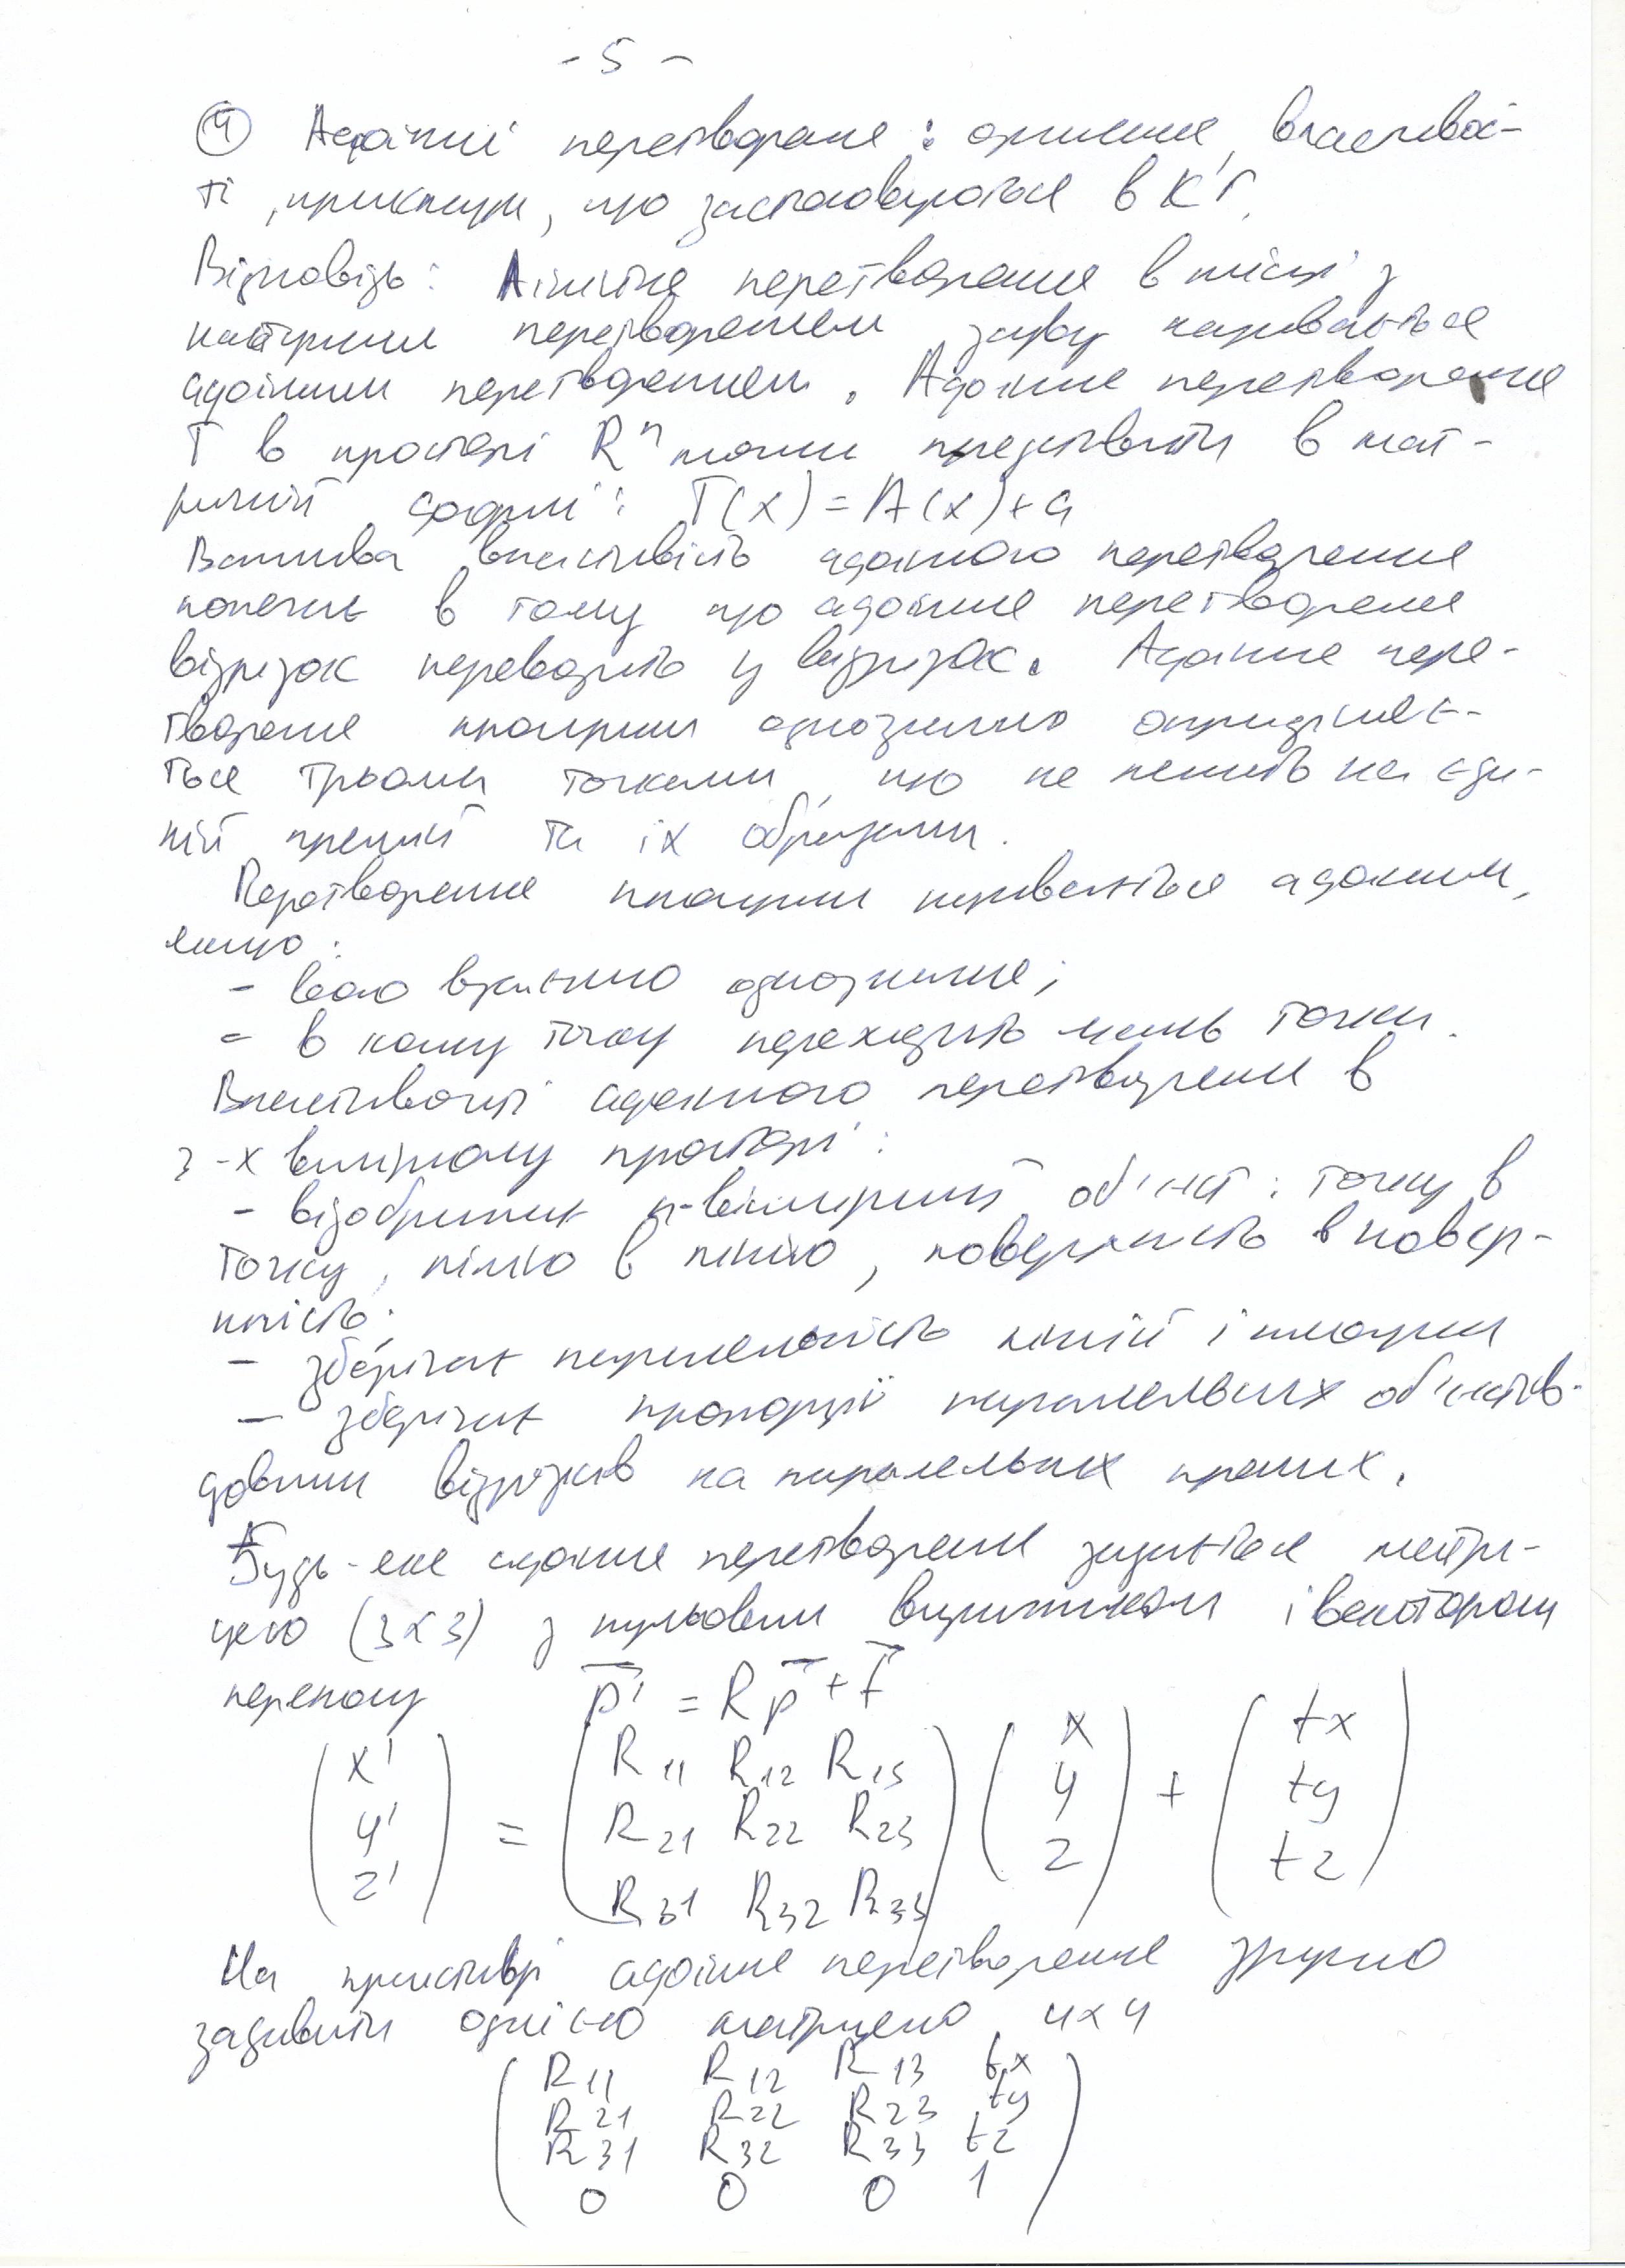 - 5 -
④ Афінні перетворення: означення, властивос-
ті, приклади, що застосовуються в КГ.
Відповідь: Лінійне перетворення в місці з
наступним перетворенням зсуву називається
афінним перетворенням. Афінне перетворення
T в просторі Rⁿ можна представити в мат-
ричній формі: T(x) = A(x) + a
Важлива властивість афінного перетворення
полягає в тому що афінне перетворення
відрізок переводить у відрізок. Афінне пере-
творення площини однозначно определяєт-
ься трьома точками, що не лежать на оди-
ній прямій та їх образами.
Перетворення площини називається афінним,
якщо:
- воно взаємно однозначне;
- в кожну точку переходить лише точка.
Властивості афінного перетворення в
3-х вимірному просторі:
- відображає n-вимірний об'єкт: точку в
точку, лінію в лінію, поверхність в повер-
хність.
- зберігає паралельність ліній і площин
- зберігає пропорції паралельних об'єктів-
довжин відрізків на паралельних прямих.
Будь-яке афінне перетворення задається матри-
цею (3x3) з нульовим визначником і вектором
переносу p' = Rp + t
(x') = (R11 R12 R13) (x) + (tx)
(y') (R21 R22 R23) (y) (ty)
(z') (R31 R32 R33) (z) (tz)
На практиці афінне перетворення зручно
задавати однією матрицею 4x4
(R11 R12 R13 tx)
(R21 R22 R23 ty)
(R31 R32 R33 tz)
(0 0 0 1)